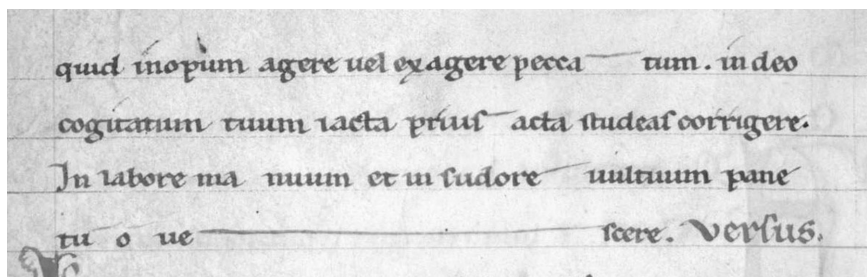 quid inopum agere uel exagere pecca tum. in deo
cogitatum tuum iacta prius acta studeas corrigere.
In labore ma nuum et in sudore uultuum pane
tu o ue scere. Versus.